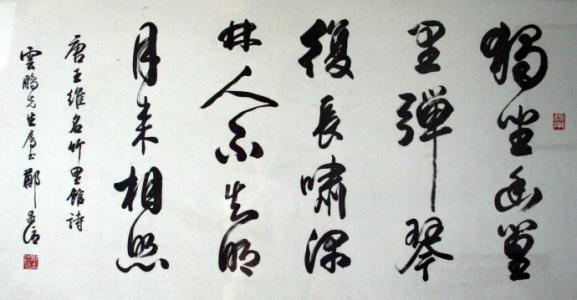 獨坐幽篁
里彈琴
復長嘯深
林人不知明
月来相照
唐王維名竹里館詩
雲鵬先生属書 鄭